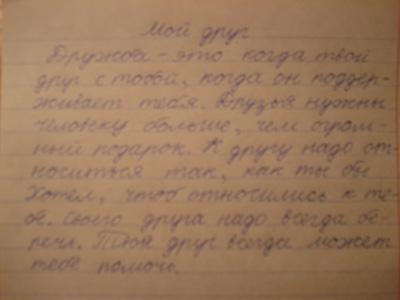 Мой друг
Дружба - это когда твой
друг с тобой, когда он поддер-
живает тебя. Друзья нужны
человеку больше, чем огром-
ный подарок. К другу надо от-
носиться так, как ты бы
хотел, чтоб относились к те-
бе. Своего друга надо всегда бе-
речь. Твой друг всегда может
тебе помочь.